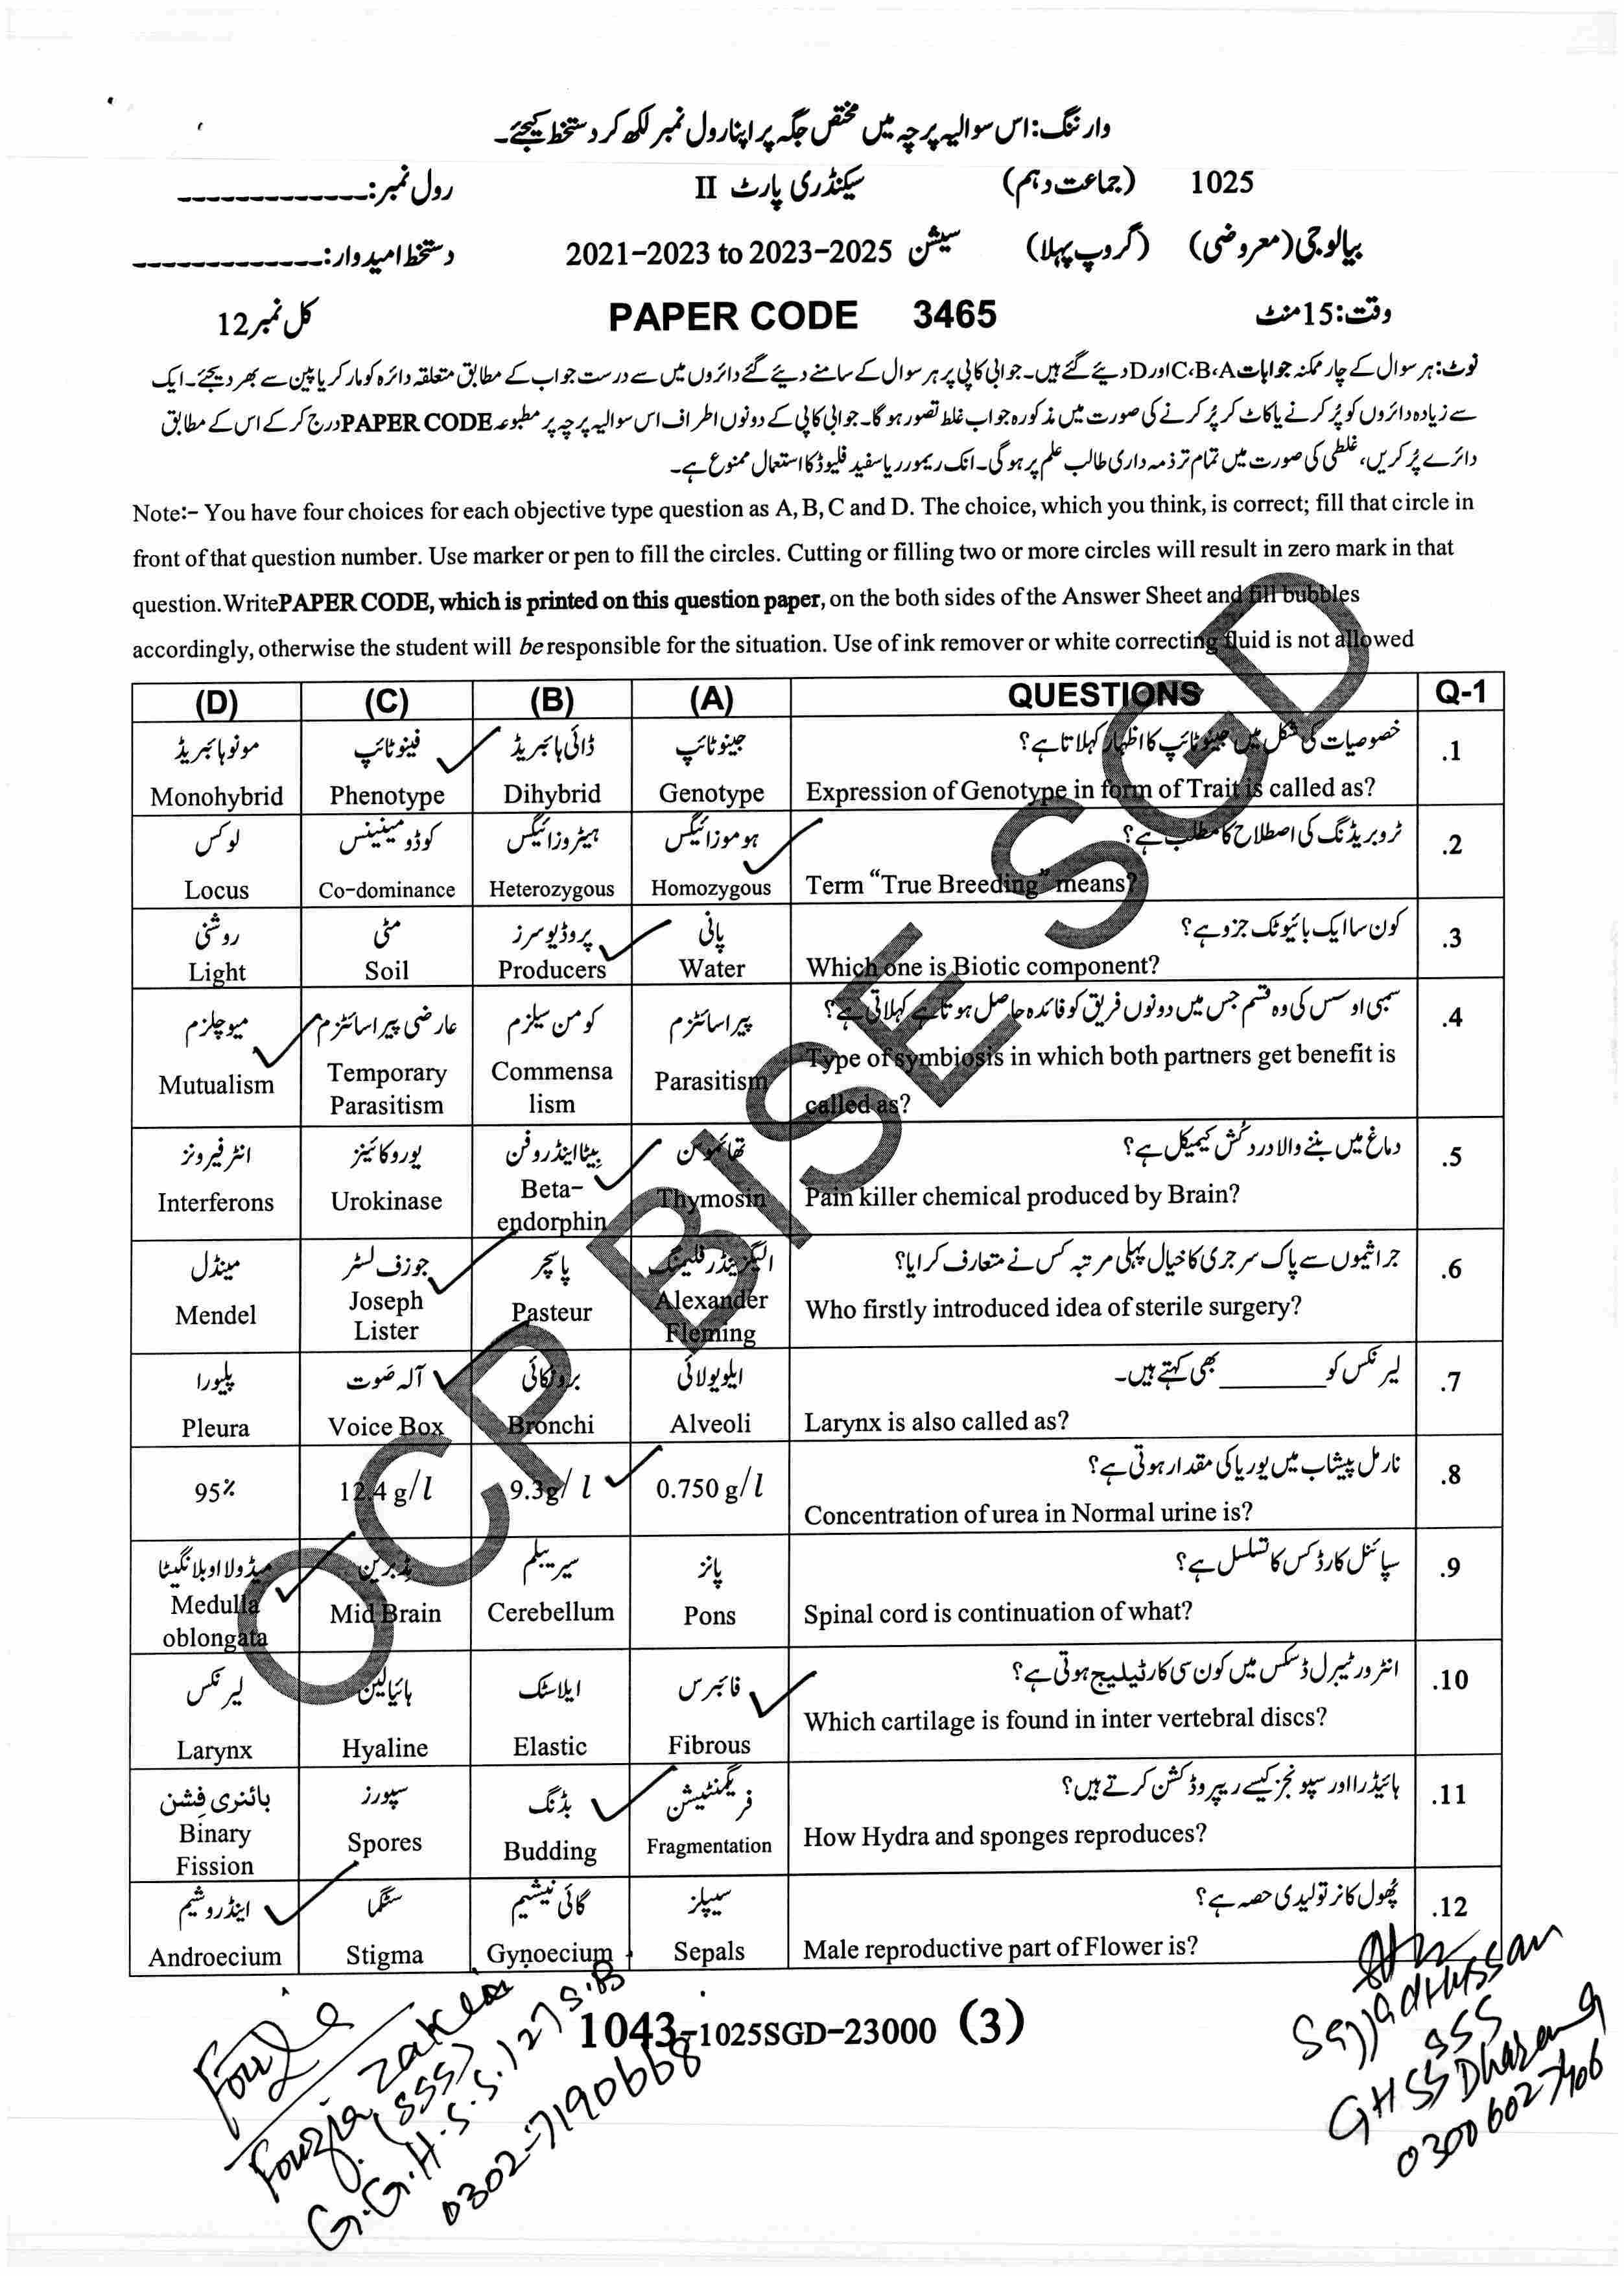 وارننگ: اس سوالیہ پرچہ میں مختص جگہ پر اپنا رول نمبر لکھ کر دستخط کیجئے۔
1025 (جماعت دہم) سیکنڈری پارٹ II رول نمبر:_____________
بیالوجی (معروضی) (گروپ پہلا) سیشن 2021-2023 to 2023-2025 دستخط امیدوار:_____________
وقت: 15 منٹ PAPER CODE 3465 کل نمبر 12
نوٹ: ہر سوال کے چار ممکنہ جوابات C،B،A اور D دیئے گئے ہیں۔ جوابی کاپی پر ہر سوال کے سامنے دیئے گئے دائروں میں سے درست جواب کے مطابق متعلقہ دائرہ کو مارکر یا پین سے بھر دیجئے۔ ایک
سے زیادہ دائروں کو پُر کرنے یا کاٹ کر پُر کرنے کی صورت میں مذکورہ جواب غلط تصور ہو گا۔ جوابی کاپی کے دونوں اطراف اس سوالیہ پرچہ پر مطبوعہ PAPER CODE درج کر کے اس کے مطابق
دائرے پُر کریں، غلطی کی صورت میں تمام تر ذمہ داری طالب علم پر ہو گی۔ انک ریمور یا سفید فلیوڈ کا استعمال ممنوع ہے۔
Note:- You have four choices for each objective type question as A, B, C and D. The choice, which you think, is correct; fill that circle in
front of that question number. Use marker or pen to fill the circles. Cutting or filling two or more circles will result in zero mark in that
question.WritePAPER CODE, which is printed on this question paper, on the both sides of the Answer Sheet and fill bubbles
accordingly, otherwise the student will be responsible for the situation. Use of ink remover or white correcting fluid is not allowed
(D) (C) (B) (A) QUESTIONS Q-1
مونوہائبریڈ فینوٹائپ ڈائی ہائبریڈ جینوٹائپ خصوصیات کی شکل میں جینوٹائپ کا اظہار کہلاتا ہے؟ .1
Monohybrid Phenotype Dihybrid Genotype Expression of Genotype in form of Trait is called as?
لوکس کوڈومیننس ہیٹروزائیگس ہوموزائیگس ٹروبریڈنگ کی اصطلاح کا مطلب ہے؟ .2
Locus Co-dominance Heterozygous Homozygous Term "True Breeding" means?
روشنی مٹی پروڈیوسرز پانی کون سا ایک بائیوٹک جزو ہے؟ .3
Light Soil Producers Water Which one is Biotic component?
میوچلزم عارضی پیراسائٹزم کومن سیلزم پیراسائٹزم سمبی اوسس کی وہ قسم جس میں دونوں فریق کو فائدہ حاصل ہوتا ہے کہلاتی ہے؟ .4
Mutualism Temporary Parasitism Commensa lism Parasitism Type of symbiosis in which both partners get benefit is
called as?
انٹرفیرونز یوروکائینز بیٹا اینڈروفن تھائموسن دماغ میں بننے والا درد کُش کیمیکل ہے؟ .5
Interferons Urokinase Beta-endorphin Thymosin Pain killer chemical produced by Brain?
مینڈل جوزف لسٹر پاسچر الیگزینڈر فلیمنگ جراثیموں سے پاک سرجری کا خیال پہلی مرتبہ کس نے متعارف کرایا؟ .6
Mendel Joseph Lister Pasteur Alexander Fleming Who firstly introduced idea of sterile surgery?
پلیورا آلہ صَوت برونکائی ایلویولائی لیرنکس کو ________ بھی کہتے ہیں۔ .7
Pleura Voice Box Bronchi Alveoli Larynx is also called as?
95% 12.4 g/l 9.3g/ l 0.750 g/l نارمل پیشاب میں یوریا کی مقدار ہوتی ہے؟ .8
Concentration of urea in Normal urine is?
میڈولا اوبلانگیٹا مڈبرین سیریبلم پانز سپائنل کارڈ کس کا تسلسل ہے؟ .9
Medulla oblongata Mid Brain Cerebellum Pons Spinal cord is continuation of what?
لیرنکس ہائیالین ایلاسٹک فائبرس انٹرورٹیبرل ڈسکس میں کون سی کارٹیلیج ہوتی ہے؟ .10
Larynx Hyaline Elastic Fibrous Which cartilage is found in inter vertebral discs?
بائنری فِشن سپورز بڈنگ فریگمنٹیشن ہائیڈرا اور سپونجز کیسے ریپروڈکشن کرتے ہیں؟ .11
Binary Fission Spores Budding Fragmentation How Hydra and sponges reproduces?
اینڈروشیم سٹگما گائی نیشیم سیپلز پُھول کا نر تولیدی حصہ ہے؟ .12
Androecium Stigma Gynoecium Sepals Male reproductive part of Flower is?
OCP BISE SGD
1043-1025SGD-23000 (3)
Fouzia Zakria
(SSS)
G.G.H.S.S.127 S.B
0302-7190668
Sajjad Hussan
SSS
GHSS Dharema
03006027406